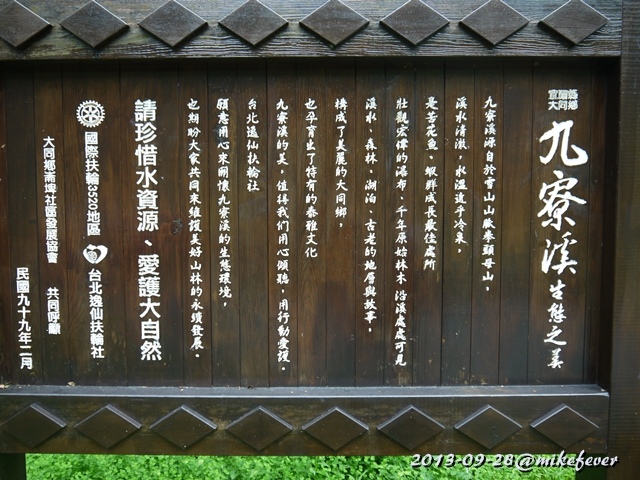 宜蘭縣
大同鄉
九寮溪生態之美
九寮溪源自於雪山山脈拳頭母山，
溪水清澈，水溫近乎冷泉，
是苦花魚、蝦群成長最佳處所
壯觀宏偉的瀑布、千年原始林木沿溪處處可見
溪水、森林、湖泊、古老的地層與故事，
構成了美麗的大同鄉，
也孕育出了特有的泰雅文化
九寮溪的美，值得我們用心傾聽，用行動愛護。
台北逸仙扶輪社
願意用心來關懷九寮溪的生態環境，
也期盼大家共同來維護美好山林的永續發展。
請珍惜水資源、愛護大自然
國際扶輪3520地區 台北逸仙扶輪社
大同鄉崙埤社區發展協會 共同呼籲
民國九十九年二月
2013-09-28@mikefever